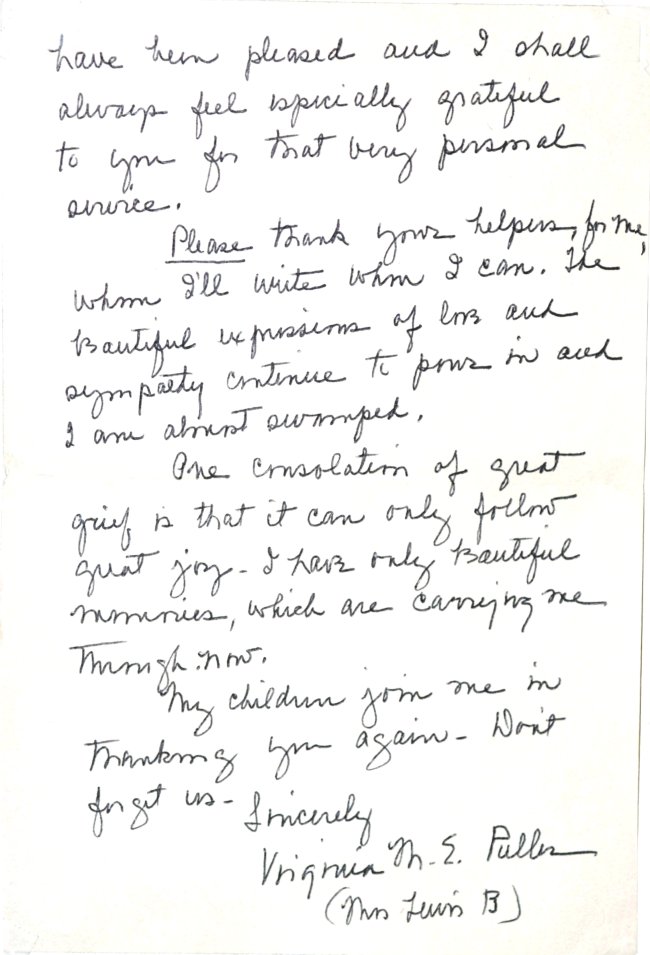 have been pleased and I shall
always feel especially grateful
to you for that very personal
service.
Please thank your helpers, for me,
whom I'll write when I can. The
beautiful expressions of love and
sympathy continue to pour in and
I am almost swamped.
One consolation of great
grief is that it can only follow
great joy - I have only beautiful
memories, which are carrying me
through now.
My children join me in
thanking you again - Don't
forget us -
Sincerely
Virginia M. E. Puller
(Mrs Lewis B)